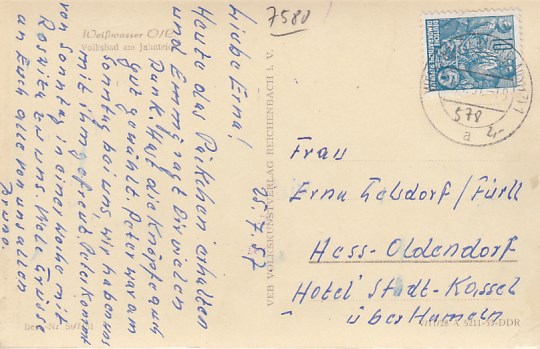 7580
Weißwasser O/L
Volksbad am Jahnteich
Liebe Erna!
Heute das Päckchen erhalten
und Emmi sagt Dir vielen
Dank. Hast die Knöpfe auch
gut gewählt. Peter war am
Sonntag bei uns, wir haben uns
mit ihm gefreut. Peter kommt
von Sonntag in einer Woche mit
Roswita zu uns. Viele Grüße
an Euch alle von uns allen
Bruno.
25.7.57
VEB VOLKSKUNSTVERLAG REICHENBACH I. V.
DEUTSCHE DEMOKRATISCHE REPUBLIK
10
578
a
Frau
Erna
Hess-Oldendorf
Hotel Stadt-Kassel
über Hameln
A 5211-57-DDR